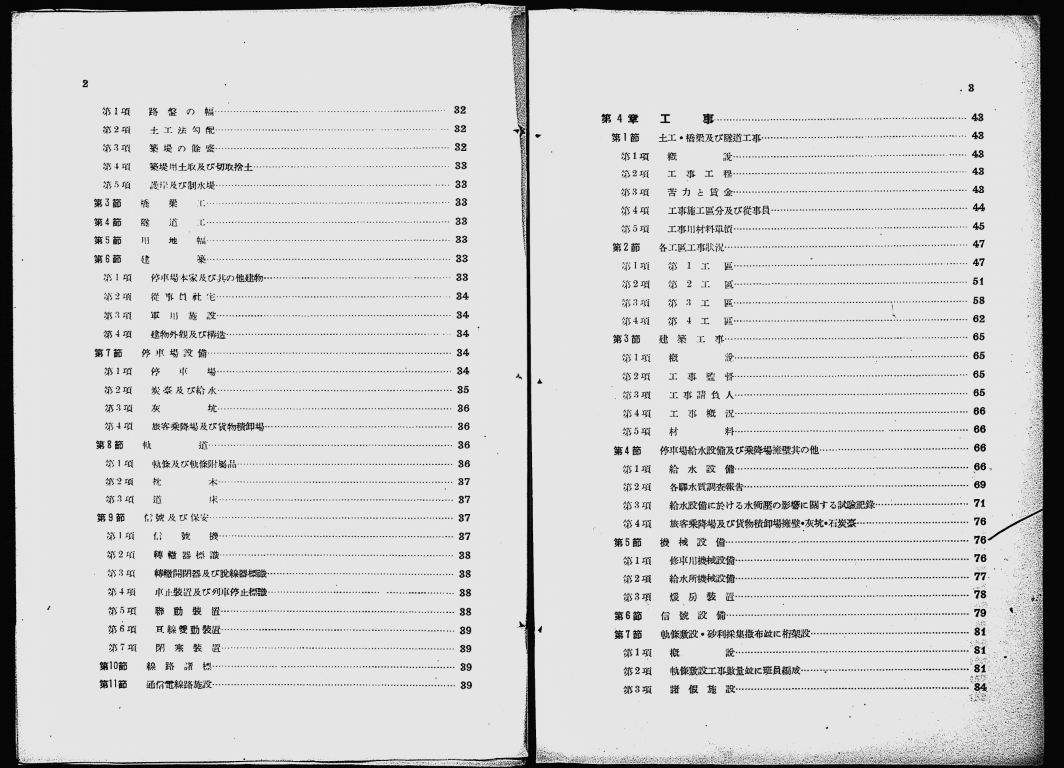 2
第1項 路盤の幅 32
第2項 土工法勾配 32
第3項 築堤の餘盛 32
第4項 築堤用土取及び切取捨土 33
第5項 護岸及び制水堤 33
第3節 橋梁工 33
第4節 隧道工 33
第5節 用地幅 33
第6節 建築 33
第1項 停車場本家及び其の他建物 33
第2項 從事員社宅 34
第3項 軍用施設 34
第4項 建物外觀及び構造 34
第7節 停車場設備 34
第1項 停車場 34
第2項 炭臺及び給水 35
第3項 灰坑 36
第4項 旅客乘降場及び貨物積卸場 36
第8節 軌道 36
第1項 軌條及び軌條附屬品 36
第2項 枕木 37
第3項 道床 37
第9節 信號及び保安 37
第1項 信號機 37
第2項 轉轍器標識 38
第3項 轉轍開閉器及び脫線器標識 38
第4項 車止裝置及び列車停止標識 38
第5項 聯動裝置 38
第6項 亙線雙動裝置 39
第7項 閉塞裝置 39
第10節 線路諸標 39
第11節 通信電線路施設 39
3
第4章 工事 43
第1節 土工・橋梁及び隧道工事 43
第1項 槪說 43
第2項 工事工程 43
第3項 苦力と賃金 43
第4項 工事施工區分及び從事員 44
第5項 工事用材料單價 45
第2節 各工區工事狀況 47
第1項 第1工區 47
第2項 第2工區 51
第3項 第3工區 58
第4項 第4工區 62
第3節 建築工事 65
第1項 槪說 65
第2項 工事監督 65
第3項 工事請負人 65
第4項 工事槪況 66
第5項 材料 66
第4節 停車場給水設備及び乘降場擁壁其の他 66
第1項 給水設備 66
第2項 各驛水質調査報告 69
第3項 給水設備に於ける水衝壓の影響に關する試驗記錄 71
第4項 旅客乘降場及び貨物積卸場擁壁・灰坑・石炭臺 76
第5節 機械設備 76
第1項 修車用機械設備 76
第2項 給水所機械設備 77
第3項 煖房裝置 78
第6節 信號設備 79
第7節 軌條敷設・砂利採集撒布竝に桁架設 81
第1項 槪說 81
第2項 軌條敷設工事數量竝に班員編成 81
第3項 諸假施設 84